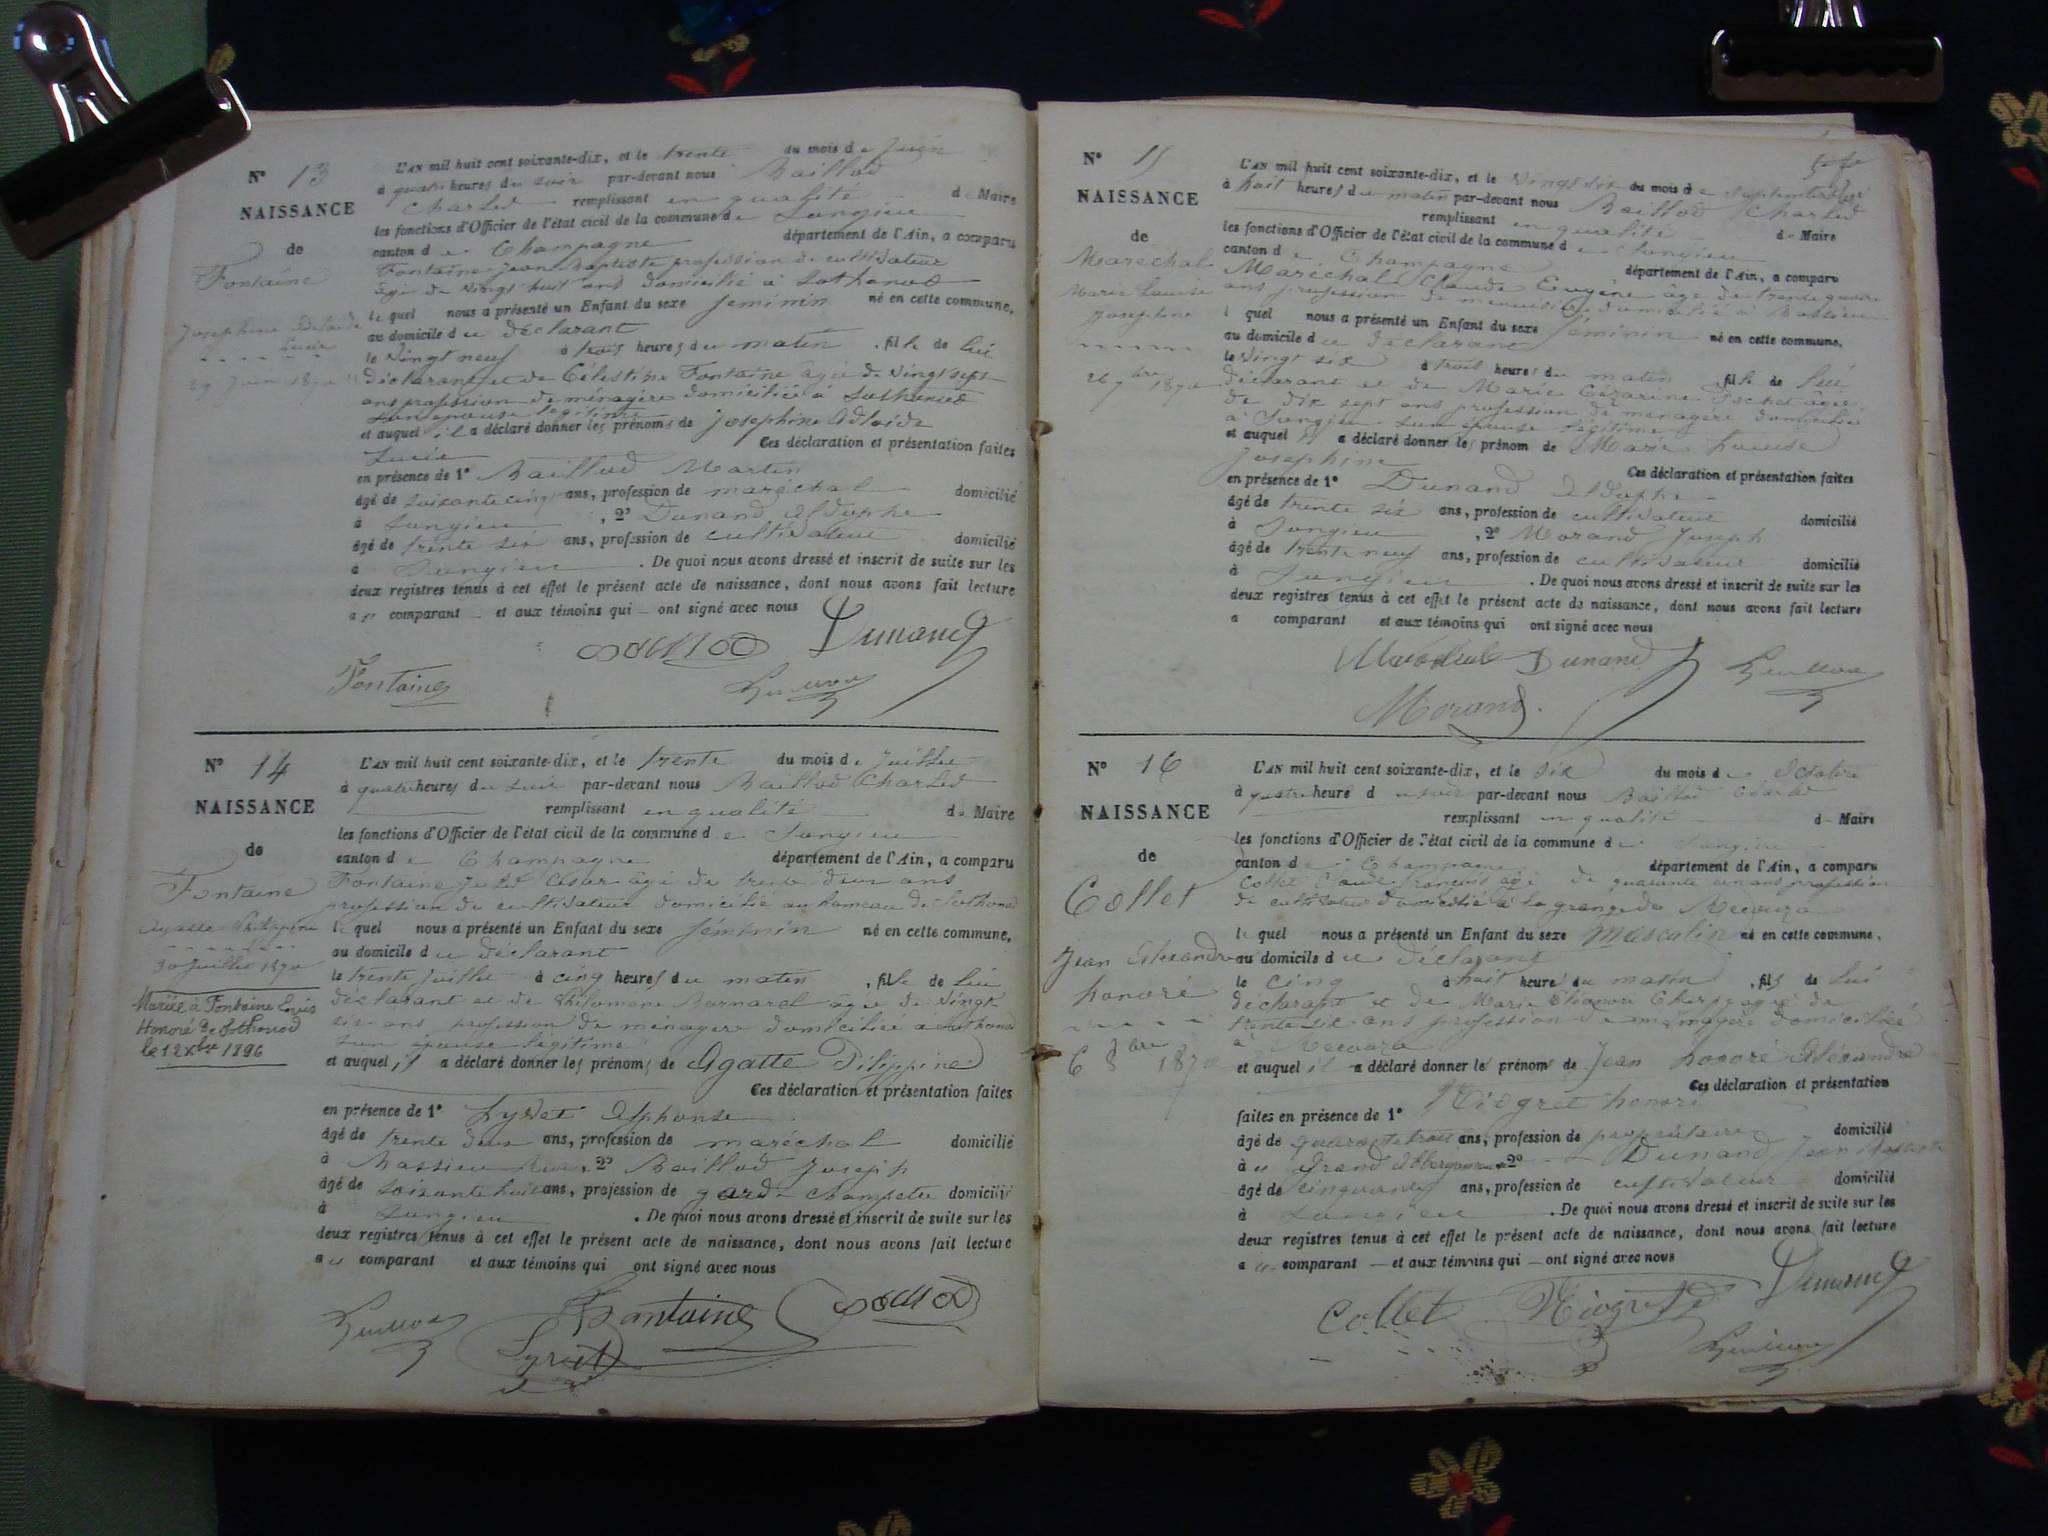 N° 13
NAISSANCE
de
Fontaine
Josephine Adelaide
Lucie
29 Juin 1870
L'AN mil huit cent soixante-dix, et le trente du mois de Juin
à quatre heures du soir par-devant nous Baillod
Charles remplissant en qualité de Maire
les fonctions d'Officier de l'état civil de la commune de Songieu
canton de Champagne département de l'Ain, a comparu
Fontaine Jean Baptiste profession de cultivateur
âgé de vingt huit ans domicilié à Sothonod
lequel nous a présenté un Enfant du sexe feminin né en cette commune,
au domicile du déclarant
le vingt neuf à trois heures du matin, fille de lui
déclarant et de Célestine Fontaine âgée de vingt sept
ans profession de ménagère domiciliée à Sothonod
son épouse legitime
et auquel il a déclaré donner les prénoms de Josephine Adlaide
Lucie Ces déclaration et présentation faites
en présence de 1° Baillod Martin
âgé de soixante cinq ans, profession de maréchal domicilié
à Songieu, 2° Dunand Aldophe
âgé de trente six ans, profession de cultivateur domicilié
à Songieu. De quoi nous avons dressé et inscrit de suite sur les
deux registres tenus à cet effet le présent acte de naissance, dont nous avons fait lecture
au comparant et aux témoins qui ont signé avec nous
Dunand
Fontaine
N° 14
NAISSANCE
de
Fontaine
Agatte Philippine
30 Juillet 1870
Mariée à Fontaine Louis
Honoré de Sothonod
le 12 Xbre 1896
L'AN mil huit cent soixante-dix, et le trente du mois de Juillet
à quatre heures du soir par-devant nous Baillod Charles
remplissant en qualité de Maire
les fonctions d'Officier de l'état civil de la commune de Songieu
canton de Champagne département de l'Ain, a comparu
Fontaine Jules César âgé de trente deux ans
profession de cultivateur domicilié au hameau de Sothonod
lequel nous a présenté un Enfant du sexe féminin né en cette commune,
au domicile du déclarant
le trente juillet à cinq heures du matin, fille de lui
déclarant et de Philomene Barnarel âgée de vingt
six ans profession de ménagere domiciliée a Sothonod
son épouse legitime
et auquel il a déclaré donner les prénoms de Agatte Pilippine
Ces déclaration et présentation faites
en présence de 1° Lyvet Alphonse
âgé de trente deux ans, profession de maréchal domicilié
à Massieu, 2° Baillod Joseph
âgé de soixante huit ans, profession de garde champetre domicilié
à Songieu. De quoi nous avons dressé et inscrit de suite sur les
deux registres tenus à cet effet le présent acte de naissance, dont nous avons fait lecture
au comparant et aux témoins qui ont signé avec nous
Fontaine
Lyvet
N° 15
NAISSANCE
de
Maréchal
Marie Louise
Josephine
26 7bre 1870
L'AN mil huit cent soixante-dix, et le vingt six du mois de Septembre
à huit heures du matin par-devant nous Baillod Charles
remplissant en qualité de Maire
les fonctions d'Officier de l'état civil de la commune de Songieu
canton de Champagne département de l'Ain, a comparu
Maréchal Claude Eugène âgé de trente quatre
ans profession de menuisier domicilié à
lequel nous a présenté un Enfant du sexe féminin né en cette commune,
au domicile du déclarant
le vingt six à trois heures du matin, fille de lui
déclarant et de Marie Cézarine Sochet âgée
de dix sept ans profession de menagère domiciliée
à Songieu son épouse légitime
et auquel il a déclaré donner les prénom de Marie Louise
Josephine Ces déclaration et présentation faites
en présence de 1° Dunand Aldophe
âgé de trente six ans, profession de cultivateur domicilié
à Songieu, 2° Morand Joseph
âgé de trente neuf ans, profession de cultivateur domicilié
à Songieu. De quoi nous avons dressé et inscrit de suite sur les
deux registres tenus à cet effet le présent acte de naissance, dont nous avons fait lecture
a comparant et aux témoins qui ont signé avec nous
Maréchal Dunand
Morand
N° 16
NAISSANCE
de
Collet
Jean Alexandre
honoré
6 8bre 1870
L'AN mil huit cent soixante-dix, et le six du mois de Octobre
à quatre heure du soir par-devant nous Baillod Charles
remplissant en qualité de Maire
les fonctions d'Officier de l'état civil de la commune de Songieu
canton de Champagne département de l'Ain, a comparu
Collet Claude François âgé de quarante cinq ans profession
de cultivateur domicilié à la grange de Mecoura
lequel nous a présenté un Enfant du sexe masculin né en cette commune,
au domicile du déclarant
le cinq à huit heure du matin, fils de lui
déclarant et de Marie Eléonore âgée de
trente six ans profession de ménagère domiciliée
à Mecoura
et auquel il a déclaré donner le prénom de Jean honoré Alexandre
Ces déclaration et présentation
faites en présence de 1° Niogret honoré
âgé de quarante trois ans, profession de propriétaire domicilié
à au Grand Abergement 2° Dunand Jean Baptiste
âgé de cinquante ans, profession de cultivateur domicilié
à Songieu. De quoi nous avons dressé et inscrit de suite sur les
deux registres tenus à cet effet le présent acte de naissance, dont nous avons fait lecture
au comparant et aux témoins qui ont signé avec nous
Collet Niogret Dunand